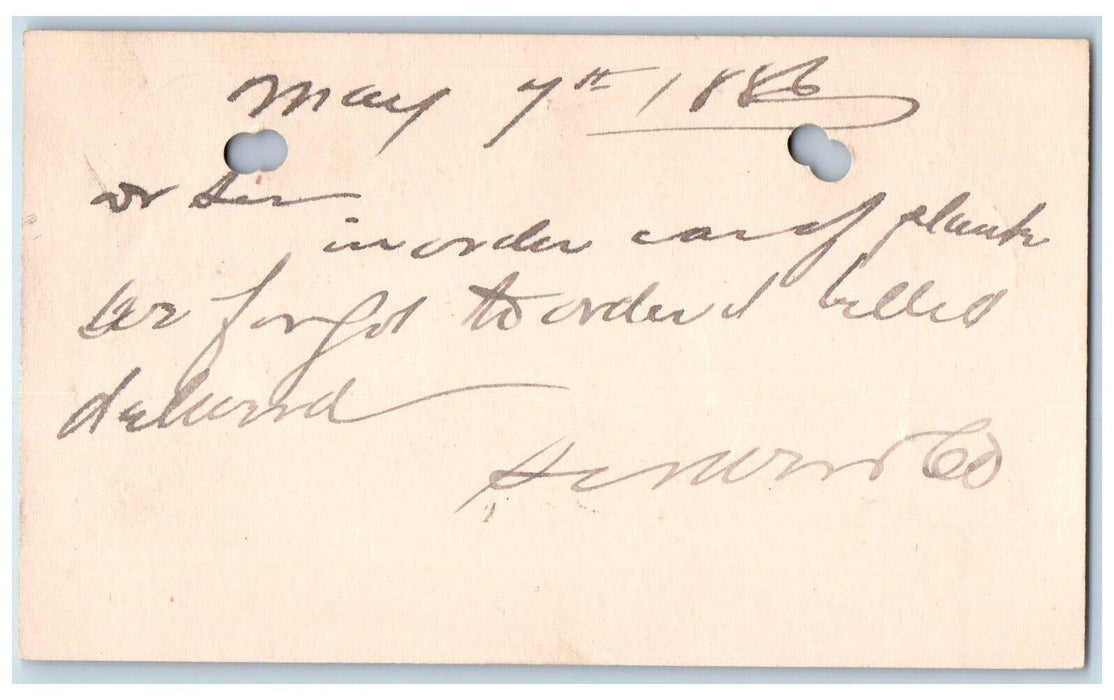 May 7th 1886
Dr Sir
in order car of plank
we forgot to order it billed
delivered
& Co